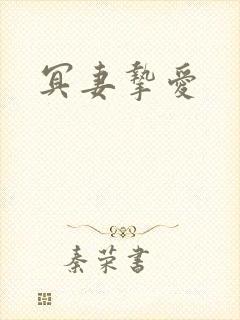 冥妻挚愛
秦荣書